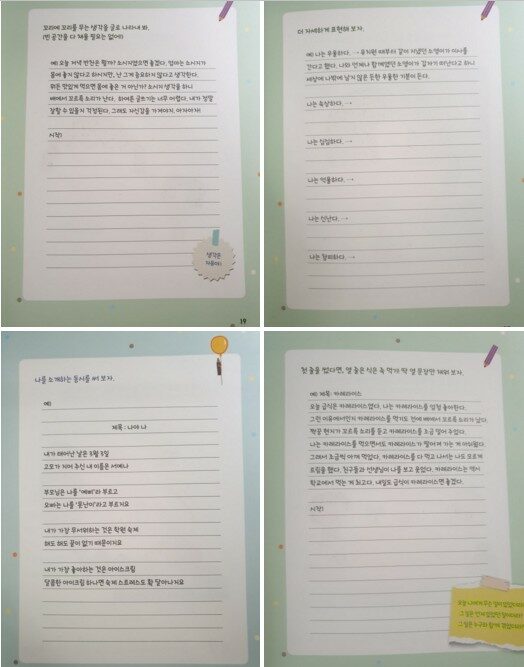 꼬리에 꼬리를 무는 생각을 글로 나타내 봐.
(빈 공간을 다 채울 필요는 없어!)
예) 오늘 저녁 반찬은 뭘까? 소시지였으면 좋겠다. 엄마는 소시지가
몸에 좋지 않다고 하시지만, 난 그게 중요하지 않다고 생각한다.
뭐든 맛있게 먹으면 몸에 좋은 거 아닌가? 소시지 생각을 하니
배에서 꼬르륵 소리가 난다. 하여튼 글쓰기는 너무 어렵다. 내가 정말
잘할 수 있을지 걱정된다. 그래도 자신감을 가져야지. 아자아자!
시작!
생각은
자유야!
19
더 자세하게 표현해 보자.
예) 나는 우울하다. → 유치원 때부터 같이 지냈던 소영이가 이사를
간다고 했다. 나와 언제나 함께였던 소영이가 갑자기 떠난다고 하니
세상에 나밖에 남지 않은 듯한 우울한 기분이 든다.
나는 속상하다. →
나는 심심하다. →
나는 억울하다. →
나는 신난다. →
나는 창피하다. →
나를 소개하는 동시를 써 보자.
예)
제목 : 나야 나
내가 태어난 날은 3월 3일
고모가 지어 주신 내 이름은 서예나
부모님은 나를 “예삐”라 부르고
오빠는 나를 “못난이”라고 부르지요
내가 가장 무서워하는 것은 학원 숙제
해도 해도 끝이 없기 때문이지요
내가 가장 좋아하는 것은 아이스크림
달콤한 아이크림 하나면 숙제 스트레스도 확 달아나지요
첫 줄을 썼다면, 열 줄은 식은 죽 먹기! 딱 열 문장만 채워 보자.
예) 제목: 카레라이스
오늘 급식은 카레라이스였다. 나는 카레라이스를 엄청 좋아한다.
그런 이유에서인지 카레라이스를 먹기도 전에 배에서 꼬르륵 소리가 났다.
짝꿍 현지가 꼬르륵 소리를 듣고 카레라이스를 조금 덜어 주었다.
나는 카레라이스를 먹으면서도 카레라이스가 떨어져 가는 게 아쉬웠다.
그래서 조금씩 아껴 먹었다. 카레라이스를 다 먹고 나서는 나도 모르게
트림을 했다. 친구들과 선생님이 나를 보고 웃었다. 카레라이스는 역시
학교에서 먹는 게 최고다. 내일도 급식이 카레라이스면 좋겠다.
시작!
오늘 나에게 무슨 일이 있었더라?
그 일은 언제 있었던 일이더라?
그 일은 누구와 함께 겪었더라?